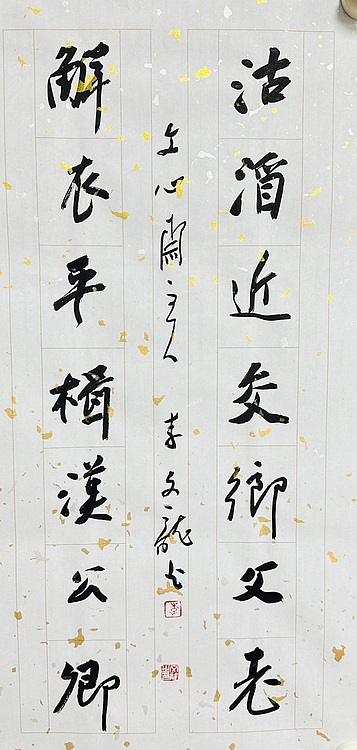 沽酒近交鄉父老
解衣平楫漢公卿
文心主人 李文龍书